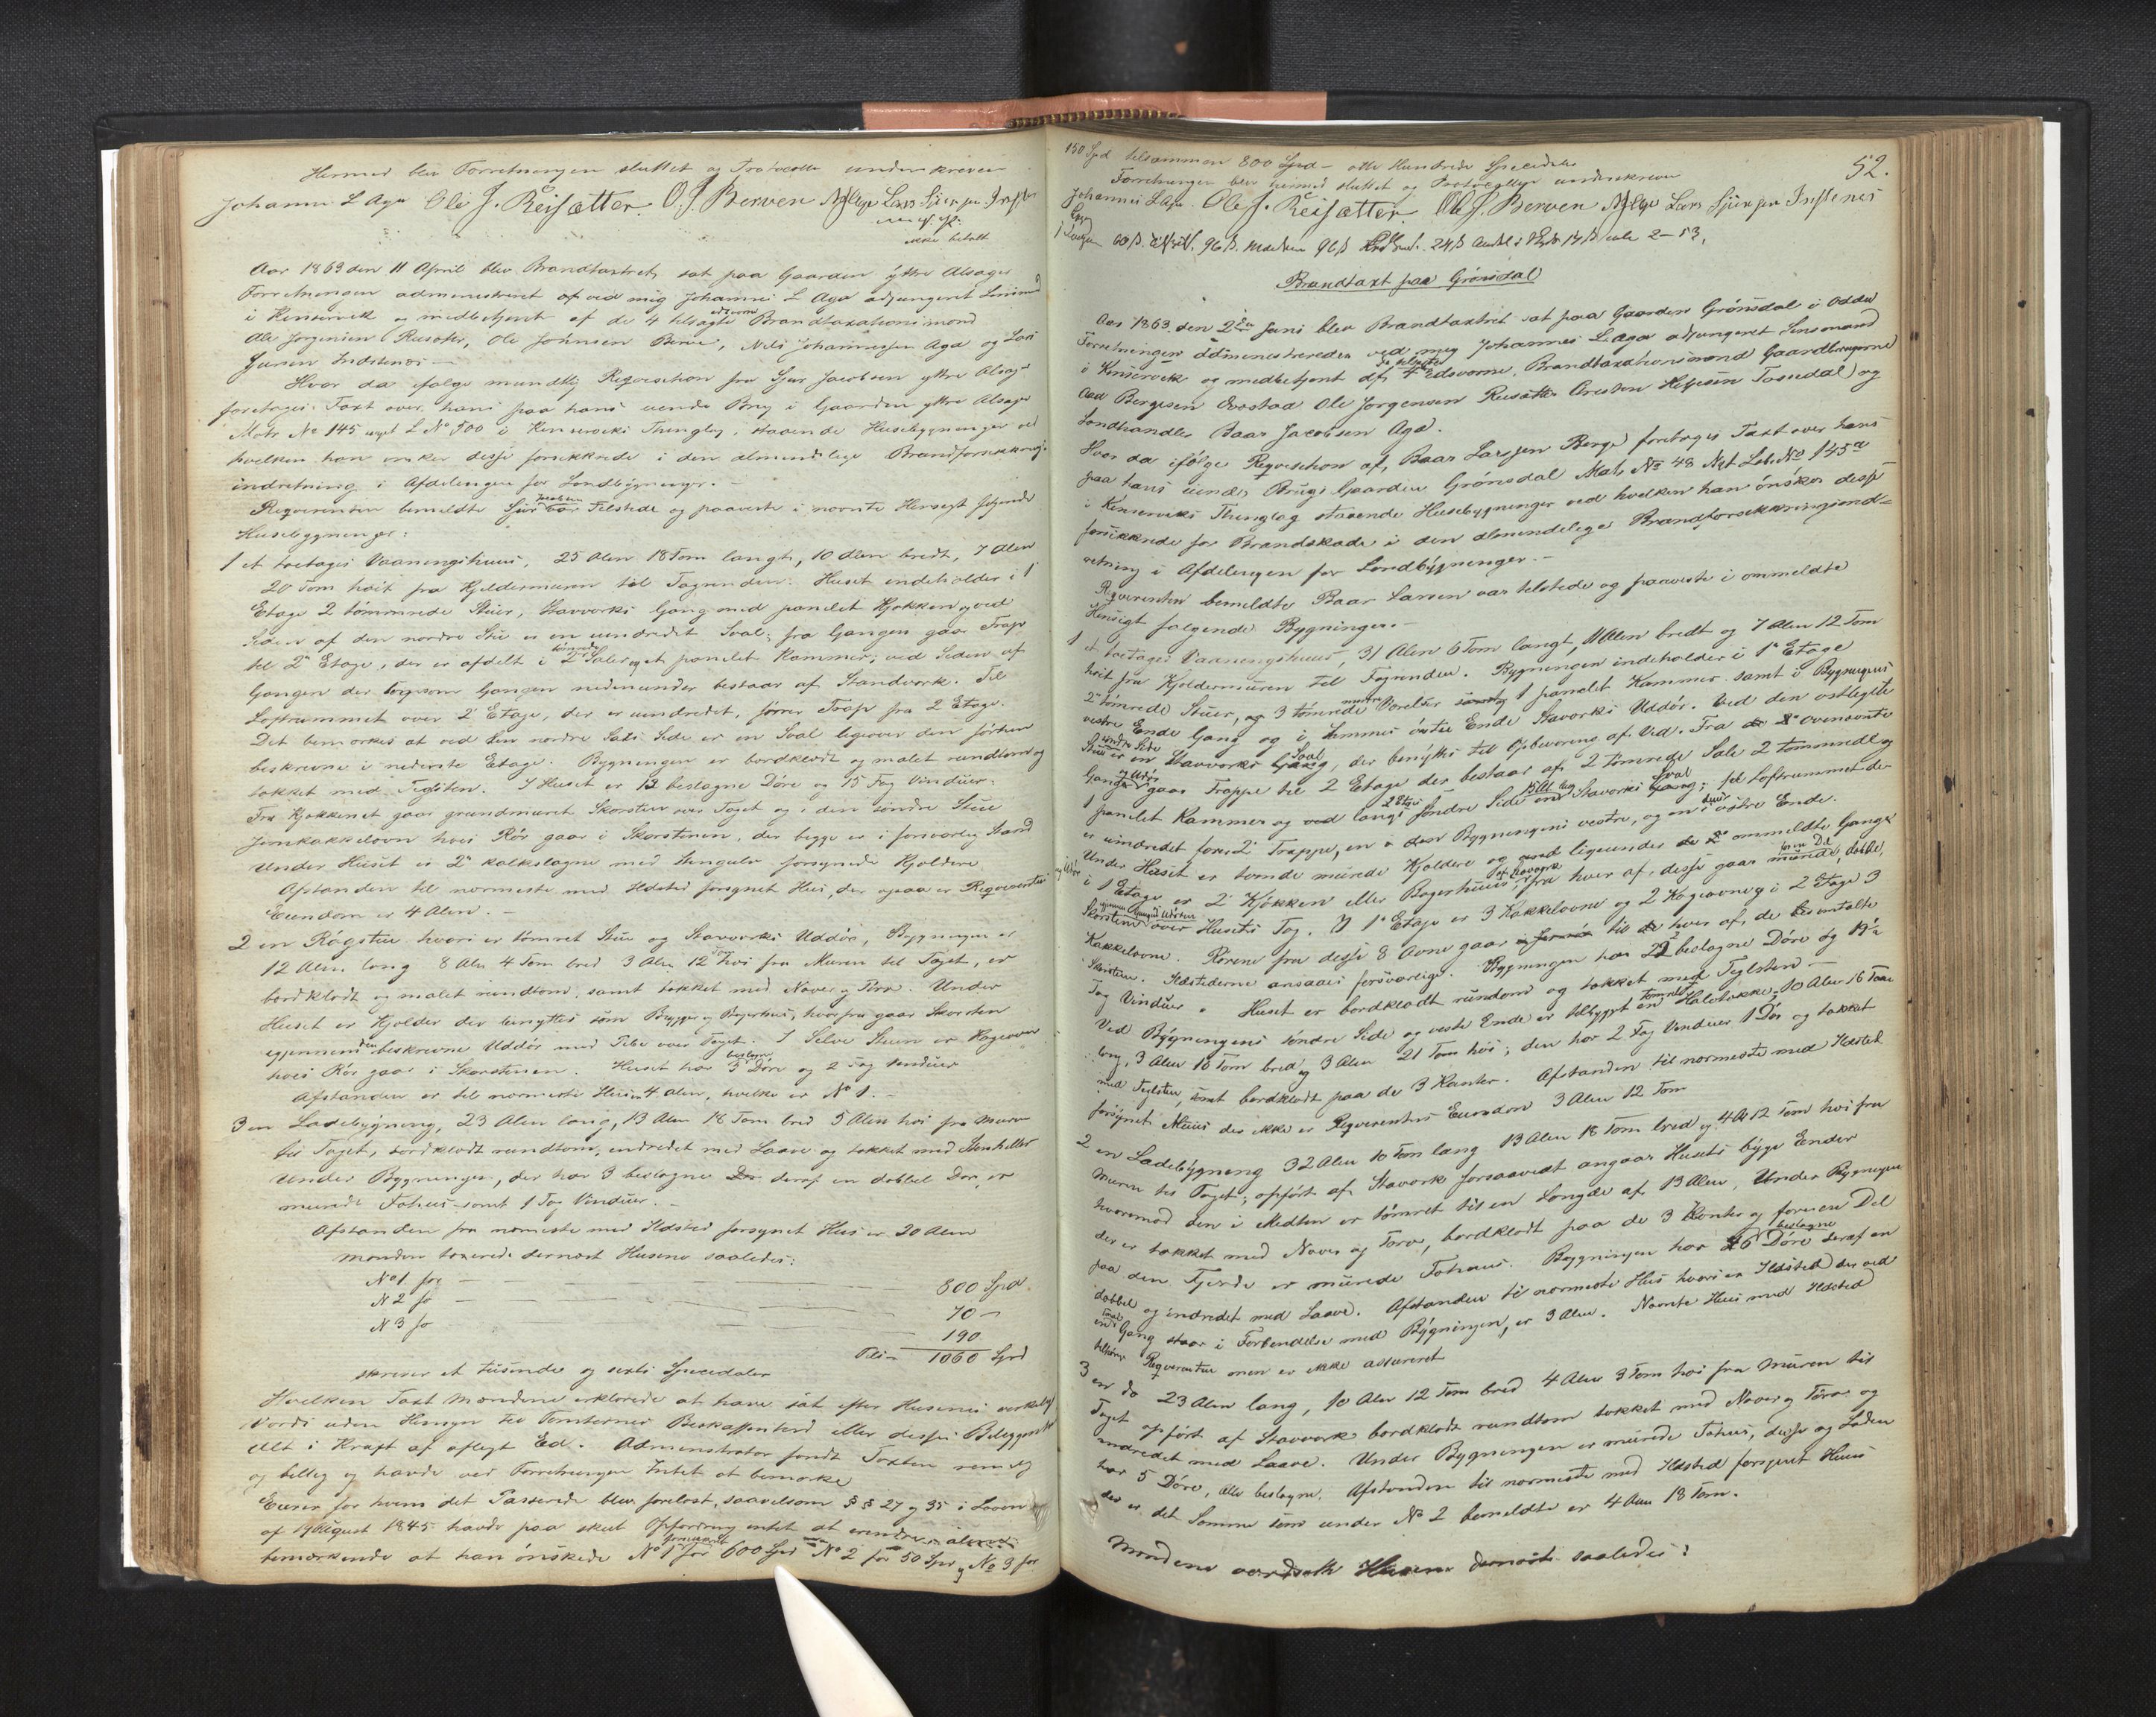 Hermed blev Forretningen sluttet og Protocollen underskreven
Johannes L Aga Ole J. Reisætter. O. J. Berven NJAga Lars Sjursen Instenes
ikke betalt
Aar 1863 den 11 April blev Brandtaxtret sat paa Gaarden ÿttre Alsager
Forretningen administreret af ved mig Johannes L Aga adjungeret Lensmand
i Kinservik og medbetjent af de 4 tilsagte edsvorne Brandtaxationsmænd
Ole Jorgensen Reisæter, Ole Johnsen Berve, Nils Johannessen Aga og Lars
Sjursen Indstenes —
Hvor da ifølge mundtlig Reqvisition fra Sjur Jacobsen yttre Alsag-
foretages Taxt over hans paa hans eiende Brug i Gaarden yttre Alsager
Matr No 145 L No 500 i Kinserviks Thinglag, staaende Husebygninger ved
hvilken han ønsker disse forsikkrede i den almindelige Brandforsikkrings-
indretning i Afdelingen for Landbygninger. —
Reqverenten bemeldte Sjur Jacobsen var Tilstede og paaviste i nævnte Hensigt følgende
Husebygninger:
1 et toetages Vaaningshuus, 25 Alen 18 Tom langt, 10 Alen bredt, 7 Alen
20 Tom høit fra Kjeldermuren til Tagrenden. Huset indeholder i 1
Etage 2 tømmrede Stuer, Stavværks Gang med panelet Kjøkken ved
Siden af den nordre Stue er en uindredet Sval; fra Gangen gaar Trap
til 2den Etage, der er afdelt i 2 tømrede Saler og et panelet Kammer; ved Siden af
Gangen der ligesom Gangen nedenunder bestaar af Standværk. Til
Loftrummet over 2 Etage, der er uindredet, fører Trap fra 2 Etage.
Det bemærkes at ved den nordre Sals Side er en Sval ligeover den førhen
beskrevne i nederste Etage. Bygningen er bordklædt og malet rundtom og
takket med Tegelsten. I Huset er 12 beslagne Døre og 15 Fag Vinduer.
Fra Kjøkkenet gaar grundmuret Skorsten over Taget og i den søndre Stue
Jernkakkelovn hvis Rør gaar i Skorstenen, der begge er i forsvarlig Stand
Under Huset er 2 kalkslagne med Stengulv forsynede Kjeldere
Afstanden til nærmeste med Ildsted forsynet Hus, der ogsaa er Reqverentens
Eiendom er 4 Alen. —
2 en Røgstue hvori er tømret Stue og Stavværks Uddør, Bygningen er
12 Alen lang 8 Alen 4 Tom bred 3 Alen 12 Tom høi fra Muren til Taget, er
bordklædt og malet rundtom, samt takket med Never og Törv. Under
Huset er Kjelder der benyttes som Brygger og Bagerhuus, hvorfra gaar Skorsten
igjennem den beskrevne Uddør med Pibe over Taget. I Selve Stuen er Kogeovn
hvis Rør gaar i Skorstenen. Huset har 3 beslagne Døre og 2 Fag Vinduer
Afstanden er til nærmeste Huus 4 Alen, hvilke er No 1. —
3 en Ladebÿgning, 23 Alen lang, 13 Alen 18 Tom bred 5 Alen høi fra Muren
til Taget, bordklædt rundtom, indredet med Laave og takket med Stenheller
under Bygningen, der har 3 beslagne Dør deraf en dobbel Dør, er
murede Føhuus samt 1 Fag Vinduer. —
Afstanden fra nærmeste med Ildsted forsynet Hus er 20 Alen
Mænden taxerede dernæst Husene saaledes:
No 1 for — 800 Spd
N 2 for — 70 —
N 3 for — 190
Tils 1060 Spd
skriver et tusinde og sexti Speciedaler
Hvilken Taxt Mændene erklærede at have sat efter Husenes virkelige
Værdi uden Hensyn til Tomternes Beskaffenhed eller disses Beliggenhed
Alt i Kraft af aflagt Ed. Administrator fandt Taxten rimelig
og billig og havde ved Forretningen Intet at bemærke
Eieren for hvem det Passerede blev forelæst, saavelsom §§ 27 og 35 i Loven
af 19 August 1845 havde paa skeet Opfordring intet at erindre
bemærkende at han ønskede No 1 forsikkret for 600 Spd No 2 for 50 Spd og No 3 for
150 Spd tilsammen 800 Spd — otte Hundrede Speciedaler
52.
Forretningen blev hermed sluttet og Protocollen underskreven
Johannes L Aga. Ole J. Reisætter. Ole J. Berven NJAga Lars Sjursen Instenes
Brandtaxt paa Grönsdal
Aar 1863. den 2den Juni blev Brandtaxtret sat paa Gaarden Grönsdal i Odda
Forretningen administrereden ved mig Johannes L Aga adjungeret Lensmand
i Kinservik og medbetjent af de tilsagte 4 Edsvorne, Brandtaxationsmænd Gaardbrugerne
Aad Bergesen Ovestad Ole Jorgensen Reisæter Cresten Helgesen Tossedal og
Landhandler Baar Jacobsen Aga.
Hvor da ifölge Reqvisition af, Baar Larsen Berge foretages Taxt over hans
paa hans eiendes Brug i Gaarden Grönsdal Mat. No 48 Nyt Löb. No 145a
i Kinserviks Thinglag staaende Husebygninger ved hvilken han önsker disse
forsikkrede for Brandskade i den almindelige Brandforsikkringsind-
retning i Afdelingen for Landbÿgninger. —
Reqverenten bemeldte Baar Larsen var tilstede og paaviste i ommeldte
Hensigt følgende Bygninger. —
1 et toetages Vaaningshuus, 31 Alen 6 Tom langt, 11 Alen bredt og 7 Alen 12 Tom
høit fra Kjeldermuren til Tagrenden. Bygningen indeholder i 1ste Etage
2 tömrede Stuer, og 3 tömrede mindre Værelser 1 panelet Kammer samt i Bygningens
vestre Ende Gang og i Sammes östre Ende Stavværks Uddör. Ved den östligste
Stues søndre Side er en Stavværks Sval, der benÿttes til Opbevaring af Ved. Fra ovennævnte
Gange og Uddör gaar Trappe til 2 Etage der bestaar af 2 tömrede Sale 2 tömmrede og
1 panelet Kammer og ved lang 2 Etages Søndre Side Stavværks Sval; til Loftrummet der
er uindredet føres 2 Trappe, en i Bygningens vestre, og en i dens östre Ende.
Under Huset er tvende murede Kjeldere og ligeunder de 2 ommeldte Gange
i 1 Etage er 2 Kjøkken eller Bagerhuus, fra hver af disse gaar murede, dobble,
Skorstene over Husets Tag. I 1ste Etage er 3 Kakkelovne og 2 Kogeovne og i 2 Etage 3
Kakkelovne. Rørene fra disse 8 Ovne gaar til hver af de besomtalte
Skorstene. Ildstederne ansaaes forsvarlige. Bygningen har 22 beslagne Döre og 19
Fag Vinduer. Huset er bordklædt rundom og takket med Teglsten —
Ved Bÿgningens søndre Side og veste Ende er tilbygget en tømret Halvtække, 10 Alen 16 Tom
lang, 3 Alen 16 Tom bred og 3 Alen 21 Tom höi; den har 2 Fag Vinduer 1 Dör og takket
med Teglsten, samt bordklædt paa de 3 Kanter. Afstanden til nærmeste med Ildsted
forsÿnet Huus der ikke er Reqverentens Eiendom 3 Alen 12 Tom
2 en Ladebÿgning 32 Alen 10 Tom lang 13 Alen 18 Tom bred og 4 Al 12 Tom høi fra
muren til Taget; opfört af Stavværk forsaavidt angaar Husets bÿge Ender
hvorimod den i Midten er tömret til en Længde af 13 Alen, Under Bÿgningen
der er takket med Never og Törv, bordklædt paa de 3 Kanter og for en Del
paa den Fjerde er murede Föhuus. Bygningen har 6 beslagne Döre deraf en
dobbel og indredet med Laave. Afstanden til nærmeste Hus hvori er Ildsted der ved
en Gang staar i Forbindelse med Bÿgningen, er 3 Alen. Nævnte Huus med Ildsted
tilhører Reqverenten men er ikke assureret
3 en do 23 Alen lang, 10 Alen 12 Tom bred 4 Alen 3 Tom høi fra Muren til
Taget opfört af Stavværk bordklædt rundtom takket med Never og Törv og
indredet med Laave. Under Bygningen er murede Föhus, disse og Laden
har 5 Döre, alle beslagne. Afstanden til nærmeste med Ildsted forsÿnet Huus
der er det Samme som under No 2 bemeldte er 4 Alen 18 Tom.
Mændene værdsatte Husene dernæst saaledes: